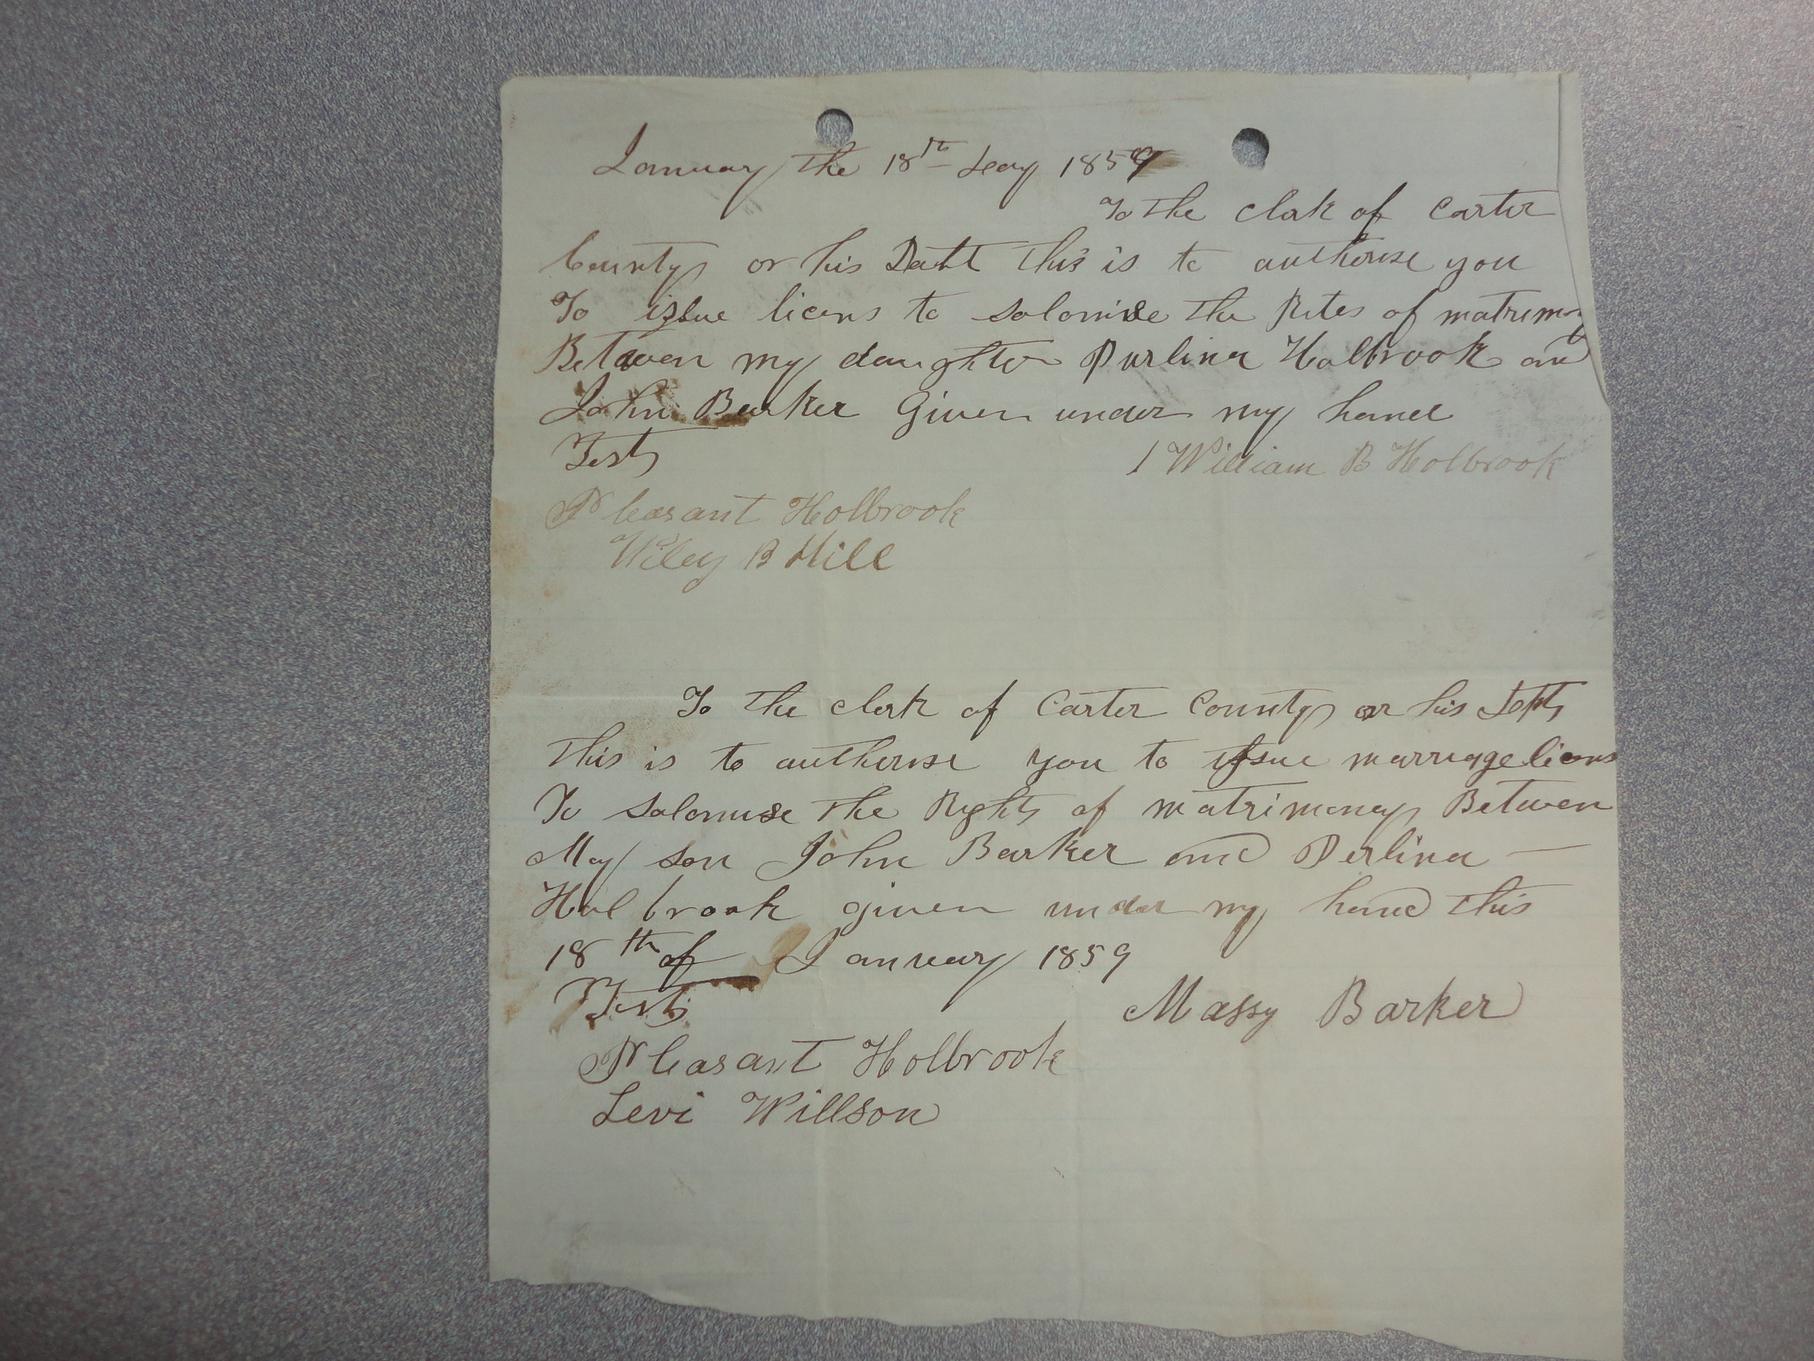 January the 18th day 1859
To the clerk of Carter
County or his this is to authorise you
To issue licens to solomise the Rites of matrimony
Between my daughter Purlina Holbrook and
John Barker Given under my hand
Test
William B Holbrook
Pleasant Holbrook
Wiley B Hill
To the clerk of Carter County or his Dept
this is to authorise you to issue marriage licens
To solomise the Rights of matrimoney Between
My son John Barker and Perlina —
Holbrook given under my hand this
18th of January 1859
Test
Massy Barker
Pleasant Holbrook
Levi Willson